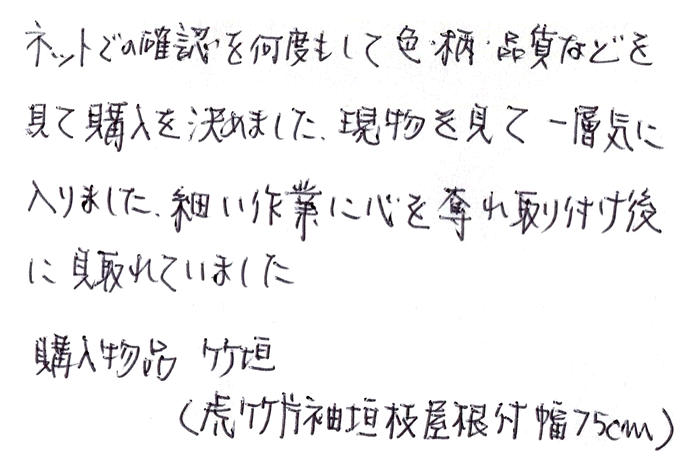 ネットでの確認を何度もして色・柄・品質などを
見て購入を決めました、現物を見て一層気に
入りました、細い作業に心を奪れ取り付け後
に見取れていました
購入物品 竹垣
(虎竹片袖垣枝屋根付幅75cm)